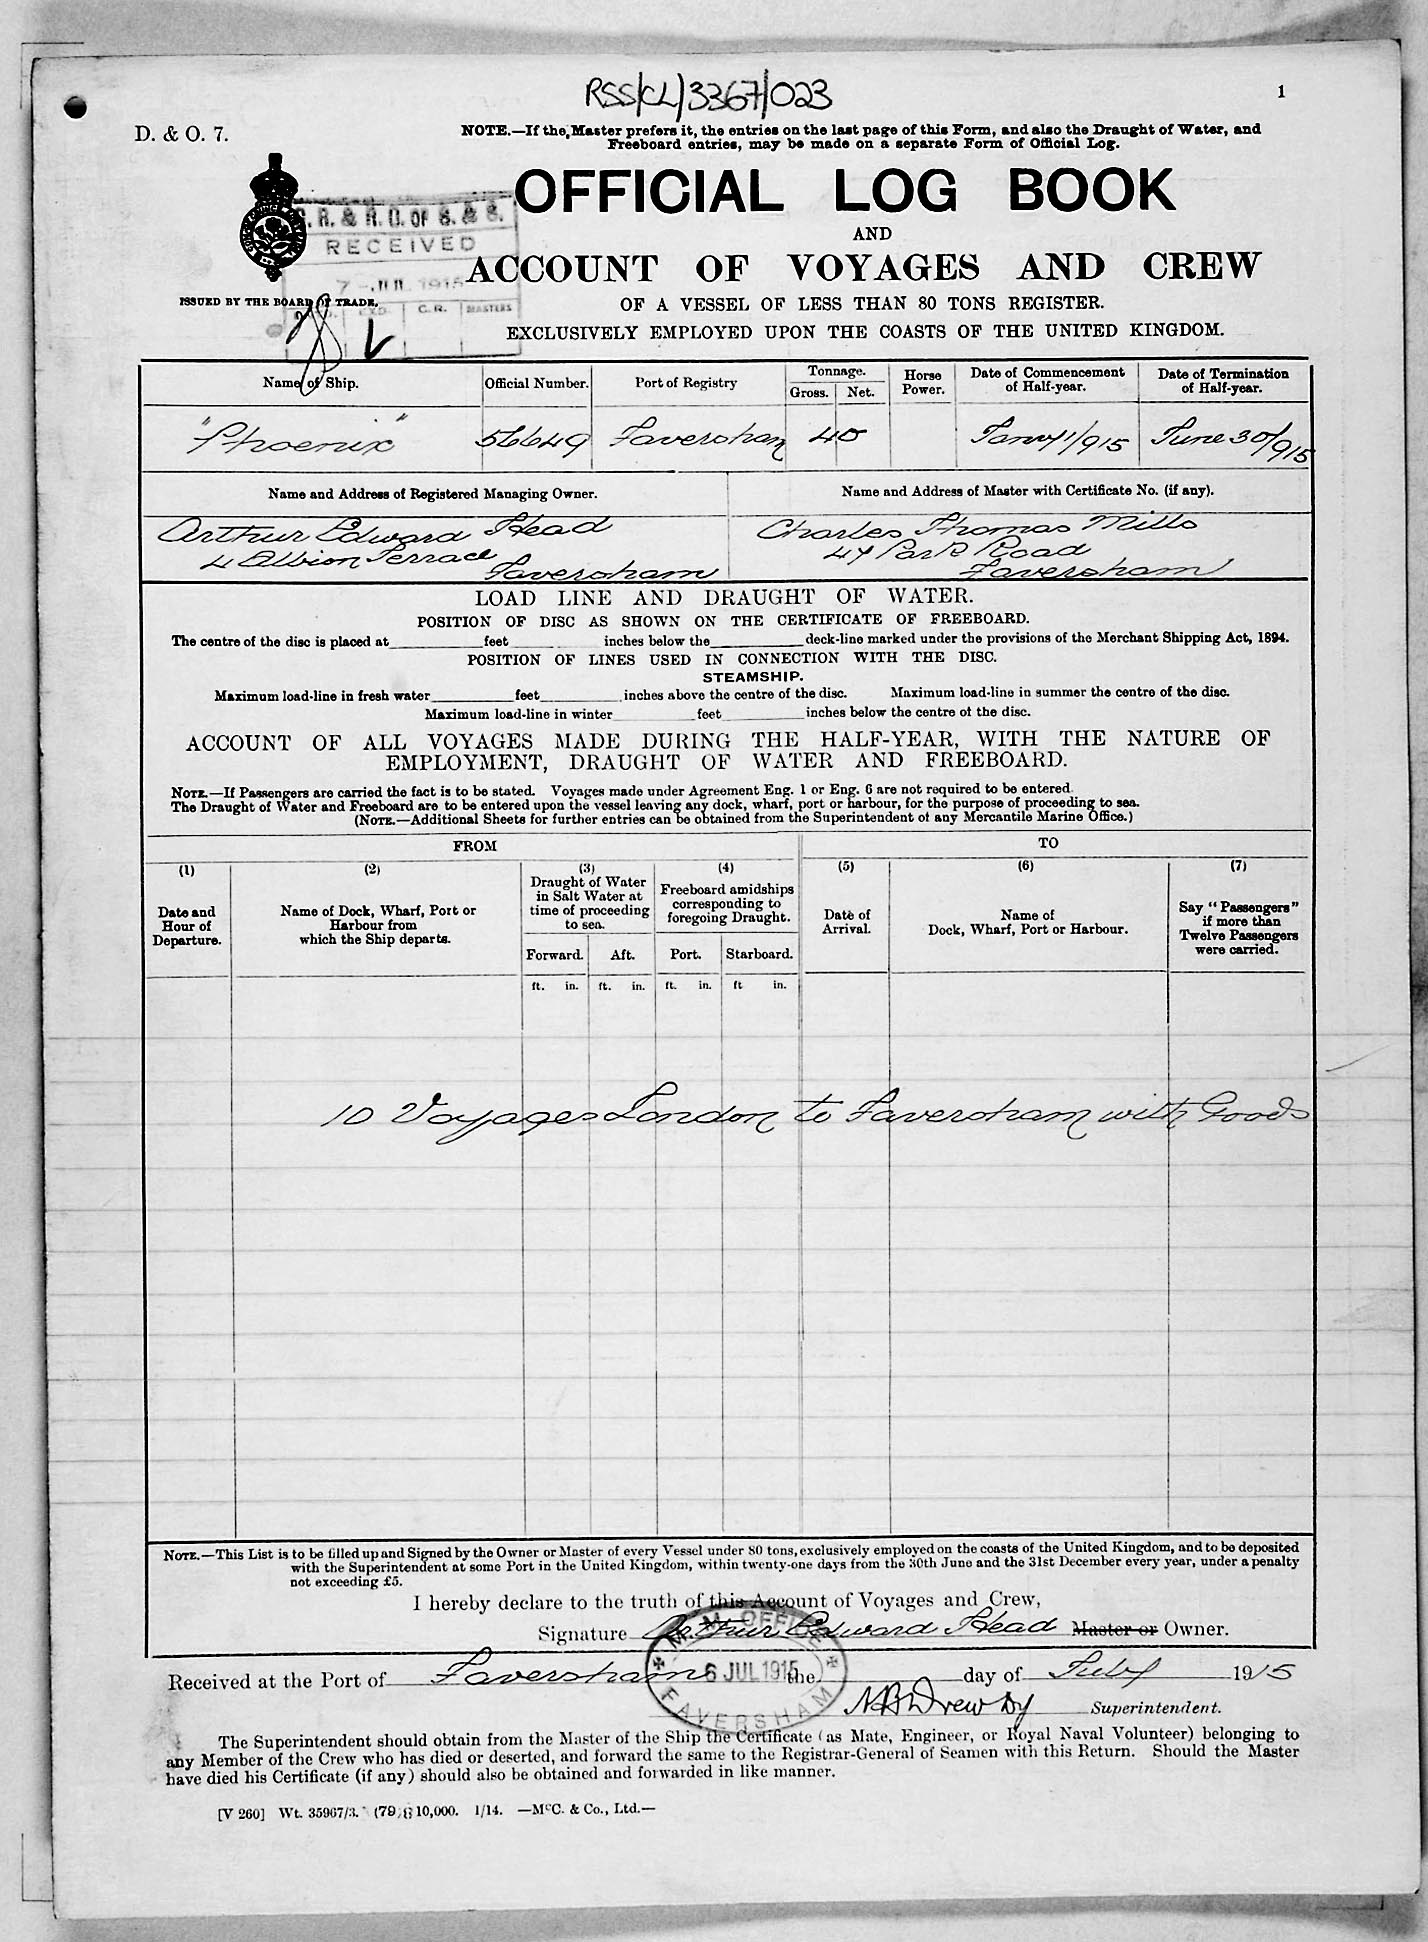 RSS/CL/3367/023
1
D. & O. 7.
NOTE.—If the Master prefers it, the entries on the last page of this Form, and also the Draught of Water, and
Freeboard entries, may be made on a separate Form of Official Log.
OFFICIAL LOG BOOK
AND
ACCOUNT OF VOYAGES AND CREW
OF A VESSEL OF LESS THAN 80 TONS REGISTER.
EXCLUSIVELY EMPLOYED UPON THE COASTS OF THE UNITED KINGDOM.
R. & R. O. OF S. & S.
RECEIVED
7 - JUL 1915
C.R. MASTERS
ISSUED BY THE BOARD OF TRADE.
Name of Ship. Official Number. Port of Registry Tonnage. Gross. Net. Horse Power. Date of Commencement of Half-year. Date of Termination of Half-year.
"Phoenix" 56649 Faversham 40 Jany 1/915 June 30/915
Name and Address of Registered Managing Owner. Name and Address of Master with Certificate No. (if any).
Arthur Edward Head Charles Thomas Mills
4 Albion Terrace 47 Park Road
Faversham Faversham
LOAD LINE AND DRAUGHT OF WATER.
POSITION OF DISC AS SHOWN ON THE CERTIFICATE OF FREEBOARD.
The centre of the disc is placed at feet inches below the deck-line marked under the provisions of the Merchant Shipping Act, 1894.
POSITION OF LINES USED IN CONNECTION WITH THE DISC.
STEAMSHIP.
Maximum load-line in fresh water feet inches above the centre of the disc. Maximum load-line in summer the centre of the disc.
Maximum load-line in winter feet inches below the centre of the disc.
ACCOUNT OF ALL VOYAGES MADE DURING THE HALF-YEAR, WITH THE NATURE OF
EMPLOYMENT, DRAUGHT OF WATER AND FREEBOARD.
NOTE.—If Passengers are carried the fact is to be stated. Voyages made under Agreement Eng. 1 or Eng. 6 are not required to be entered.
The Draught of Water and Freeboard are to be entered upon the vessel leaving any dock, wharf, port or harbour, for the purpose of proceeding to sea.
(NOTE.—Additional Sheets for further entries can be obtained from the Superintendent of any Mercantile Marine Office.)
FROM TO
(1) (2) (3) (4) (5) (6) (7)
Date and Hour of Departure.
Name of Dock, Wharf, Port or Harbour from which the Ship departs.
Draught of Water in Salt Water at time of proceeding to sea.
Freeboard amidships corresponding to foregoing Draught.
Date of Arrival.
Name of Dock, Wharf, Port or Harbour.
Say "Passengers" if more than Twelve Passengers were carried.
Forward. Aft. Port. Starboard.
ft. in. ft. in. ft. in. ft in.
10 Voyages London to Faversham with Goods
NOTE.—This List is to be filled up and Signed by the Owner or Master of every Vessel under 80 tons, exclusively employed on the coasts of the United Kingdom, and to be deposited
with the Superintendent at some Port in the United Kingdom, within twenty-one days from the 30th June and the 31st December every year, under a penalty
not exceeding £5.
I hereby declare to the truth of this Account of Voyages and Crew,
Signature Arthur Edward Head Master or Owner.
M. M. OFFICE
6 JUL 1915
FAVERSHAM
Received at the Port of Faversham the day of July 1915
Superintendent.
The Superintendent should obtain from the Master of the Ship the Certificate (as Mate, Engineer, or Royal Naval Volunteer) belonging to
any Member of the Crew who has died or deserted, and forward the same to the Registrar-General of Seamen with this Return. Should the Master
have died his Certificate (if any) should also be obtained and forwarded in like manner.
[V 260] Wt. 35967/3. 10,000. 1/14. —McC. & Co., Ltd.—